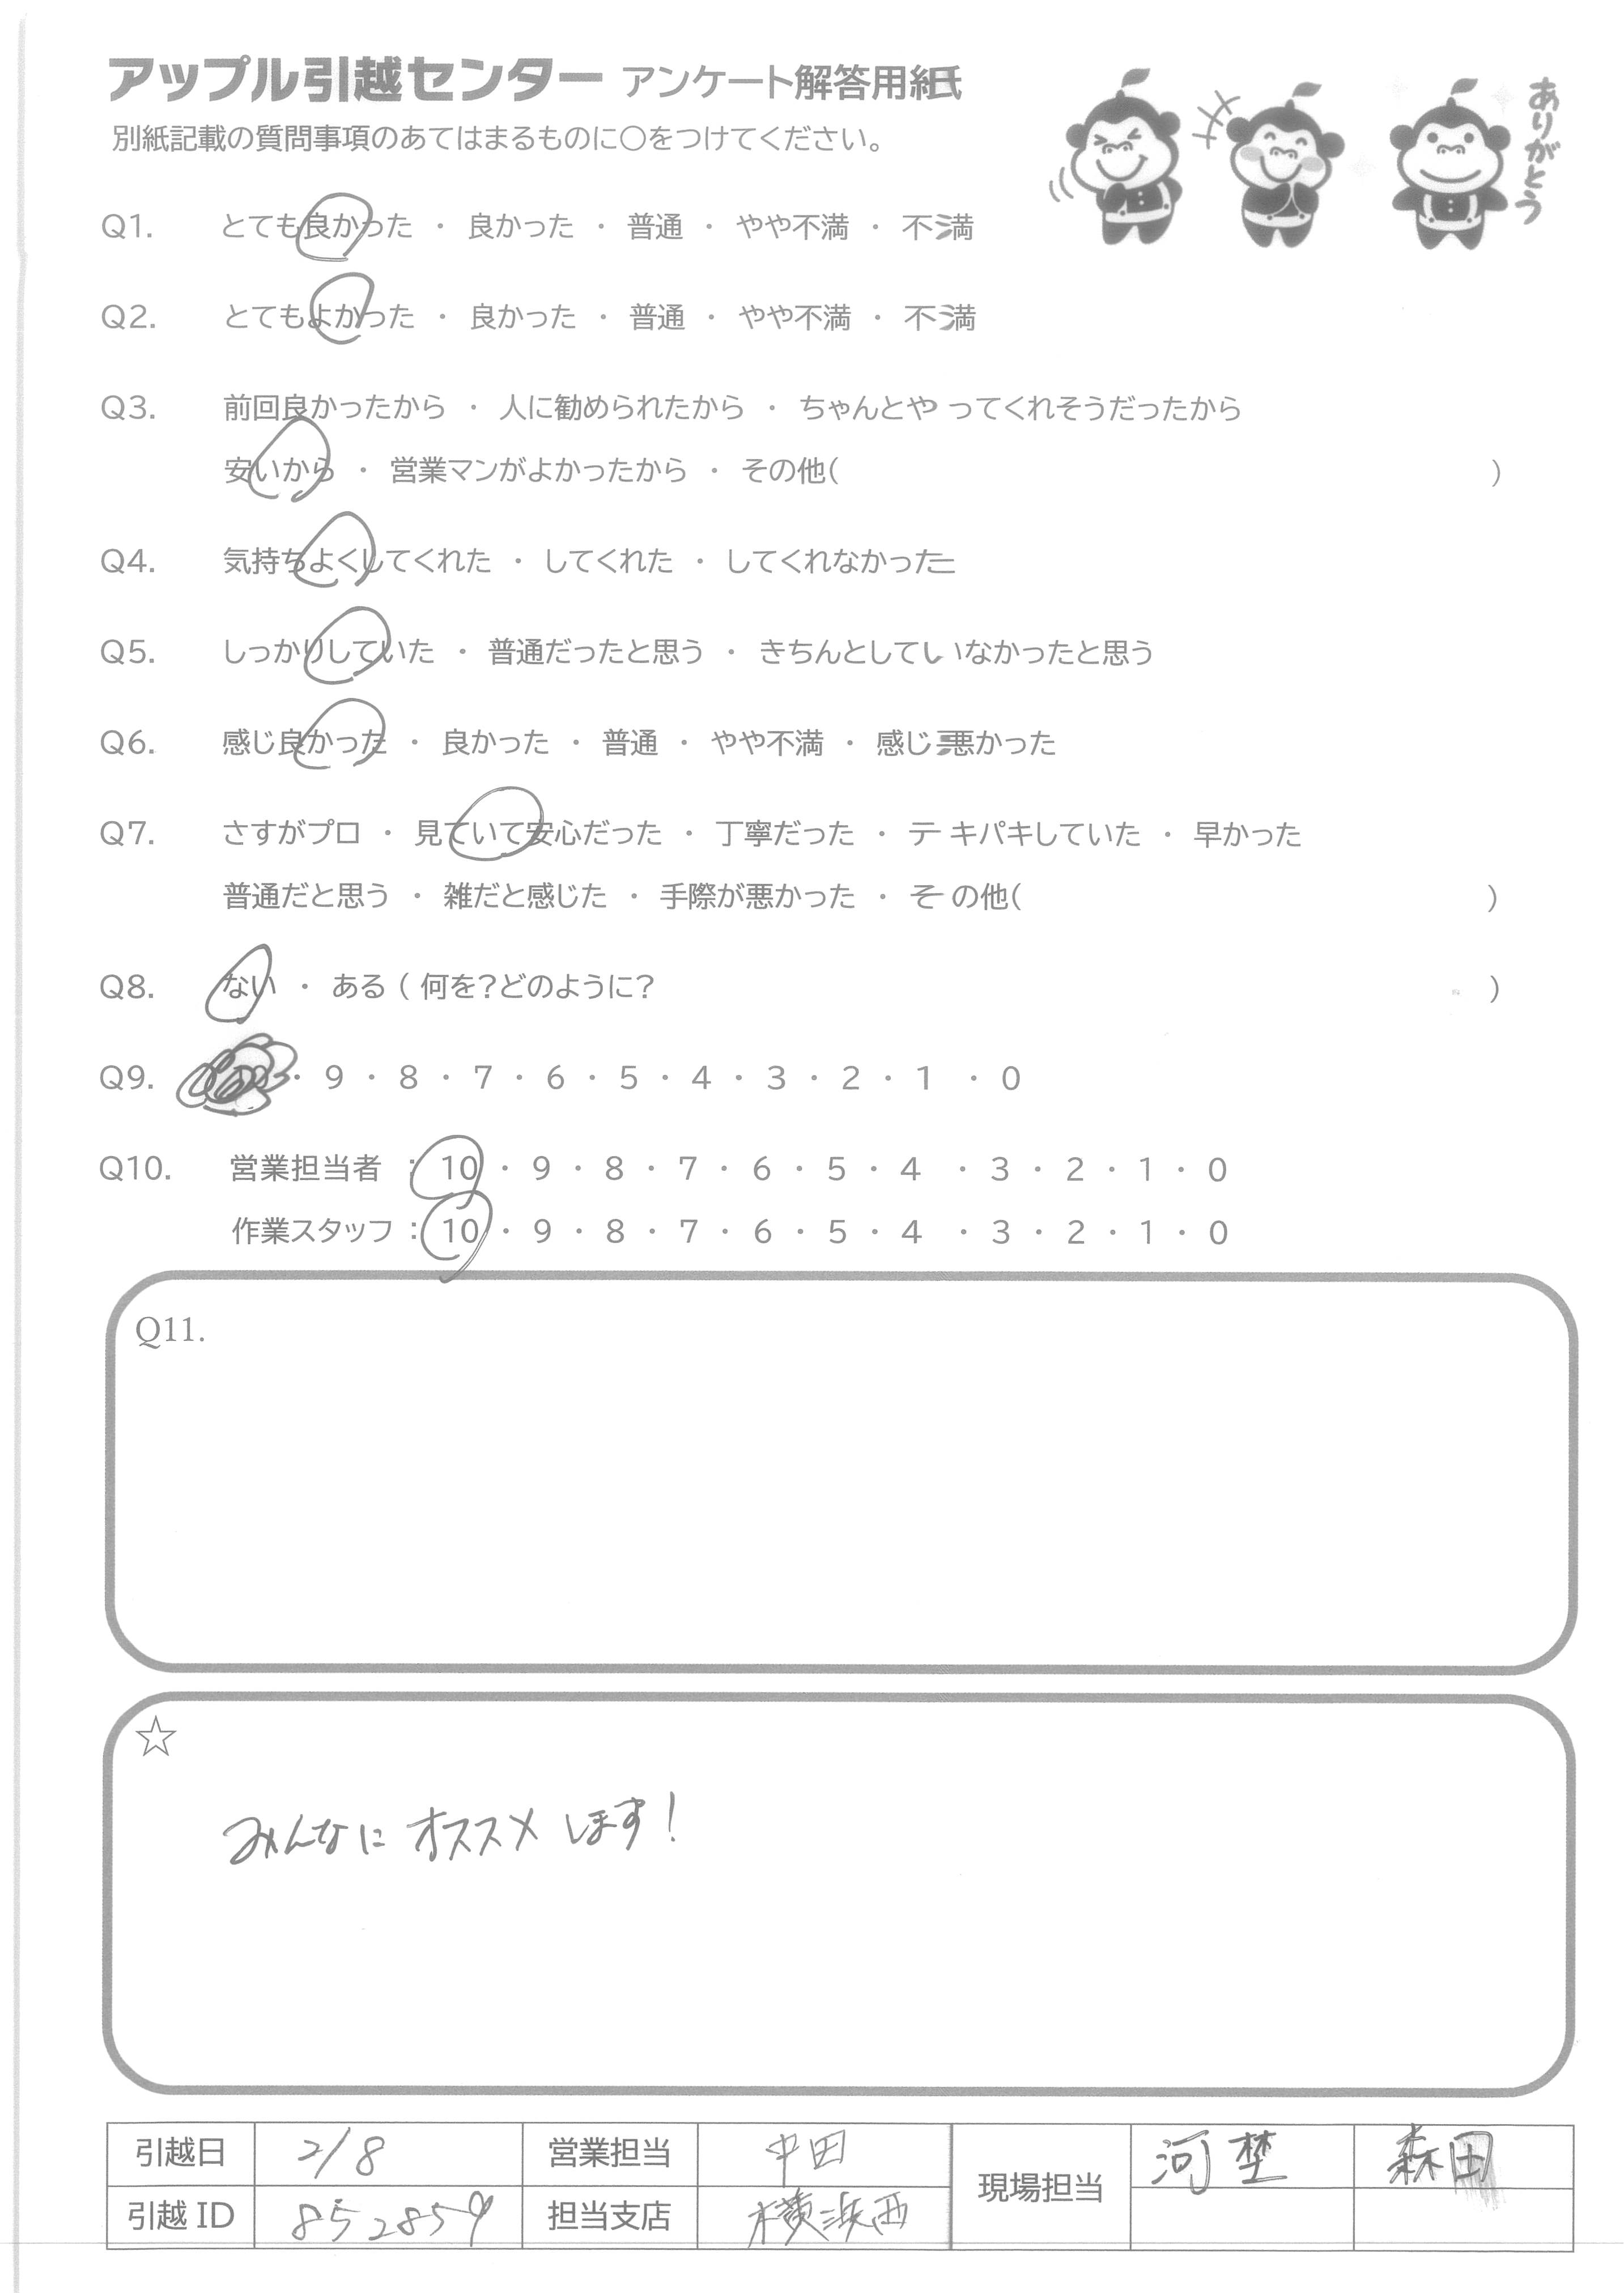 アップル引越センター アンケート解答用紙
別紙記載の質問事項のあてはまるものに○をつけてください。
ありがとう
Q1. とても良かった ・ 良かった ・ 普通 ・ やや不満 ・ 不満
Q2. とてもよかった ・ 良かった ・ 普通 ・ やや不満 ・ 不満
Q3. 前回良かったから ・ 人に勧められたから ・ ちゃんとやってくれそうだったから
安いから ・ 営業マンがよかったから ・ その他( )
Q4. 気持ちよくしてくれた ・ してくれた ・ してくれなかった
Q5. しっかりしていた ・ 普通だったと思う ・ きちんとしていなかったと思う
Q6. 感じ良かった ・ 良かった ・ 普通 ・ やや不満 ・ 感じ悪かった
Q7. さすがプロ ・ 見ていて安心だった ・ 丁寧だった ・ テキパキしていた ・ 早かった
普通だと思う ・ 雑だと感じた ・ 手際が悪かった ・ その他( )
Q8. ない ・ ある ( 何を?どのように? )
Q9. 10 ・ 9 ・ 8 ・ 7 ・ 6 ・ 5 ・ 4 ・ 3 ・ 2 ・ 1 ・ 0
Q10. 営業担当者 : 10 ・ 9 ・ 8 ・ 7 ・ 6 ・ 5 ・ 4 ・ 3 ・ 2 ・ 1 ・ 0
作業スタッフ : 10 ・ 9 ・ 8 ・ 7 ・ 6 ・ 5 ・ 4 ・ 3 ・ 2 ・ 1 ・ 0
Q11.
☆
みんなにオススメします!
引越日 2/8 営業担当 中田 現場担当 河埜 森田
引越ID 852859 担当支店 横浜西